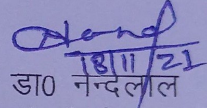 18/11/21
डा0 नन्दलाल